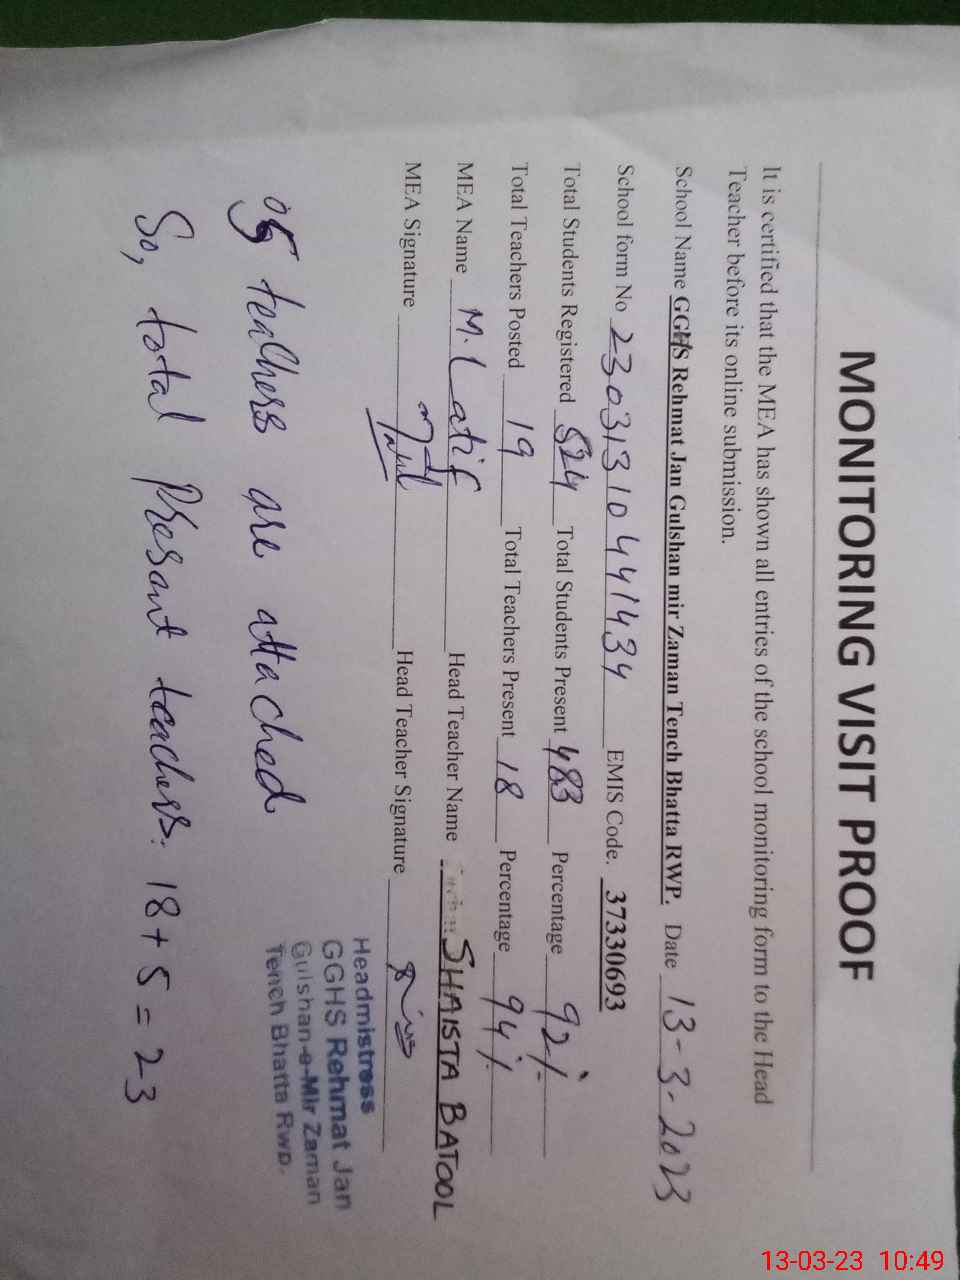 MONITORING VISIT PROOF
It is certified that the MEA has shown all entries of the school monitoring form to the Head
Teacher before its online submission.
School Name GGHS Rehmat Jan Gulshan mir Zaman Tench Bhatta RWP. Date 13-3-2023
School form No 23031310441434 EMIS Code. 37330693
Total Students Registered 524 Total Students Present 483 Percentage 92%
Total Teachers Posted 19 Total Teachers Present 18 Percentage 94%
MEA Name M. Latif Head Teacher Name SHAISTA BATOOL
MEA Signature Head Teacher Signature
Headmistress
GGHS Rehmat Jan
Gulshan-e-Mir Zaman
Tench Bhatta Rwp.
05 teachers are attached
So, total Presant teachers. 18 + 5 = 23
13-03-23 10:49